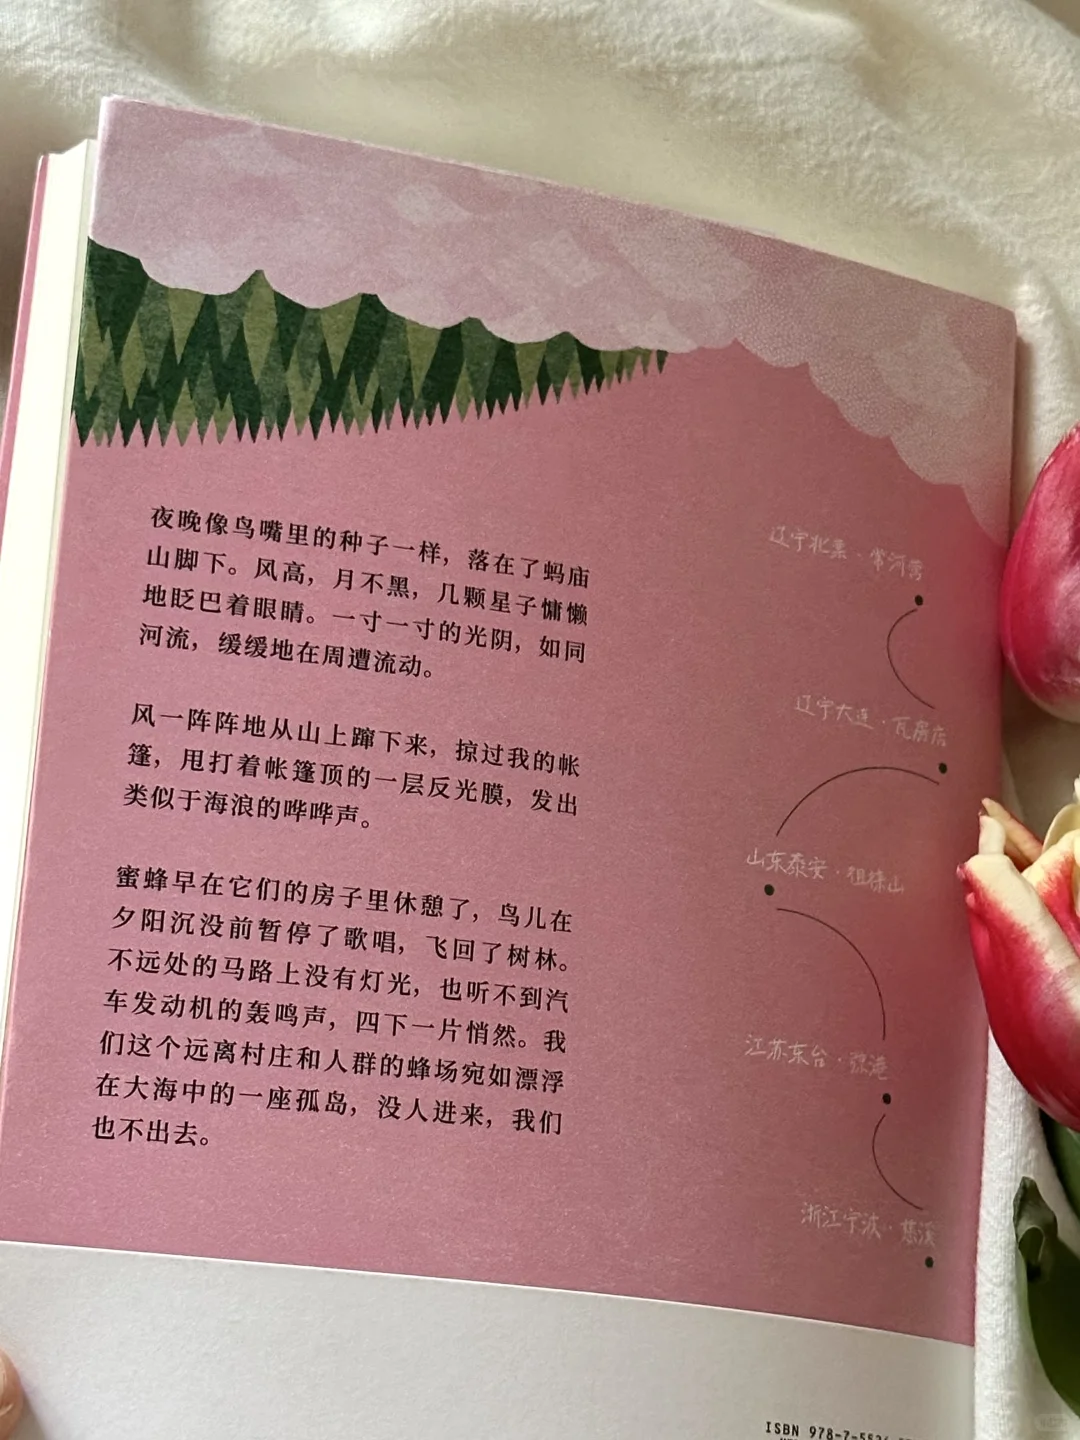 夜晚像鸟嘴里的种子一样，落在了蚂庙
山脚下。风高，月不黑，几颗星子慵懒
地眨巴着眼睛。一寸一寸的光阴，如同
河流，缓缓地在周遭流动。
风一阵阵地从山上蹿下来，掠过我的帐
篷，甩打着帐篷顶的一层反光膜，发出
类似于海浪的哗哗声。
蜜蜂早在它们的房子里休憩了，鸟儿在
夕阳沉没前暂停了歌唱，飞回了树林。
不远处的马路上没有灯光，也听不到汽
车发动机的轰鸣声，四下一片悄然。我
们这个远离村庄和人群的蜂场宛如漂浮
在大海中的一座孤岛，没人进来，我们
也不出去。
辽宁北票·常河营
辽宁大连·瓦房店
山东泰安·徂徕山
江苏东台·弶港
浙江宁波·慈溪
ISBN 978-7-5526